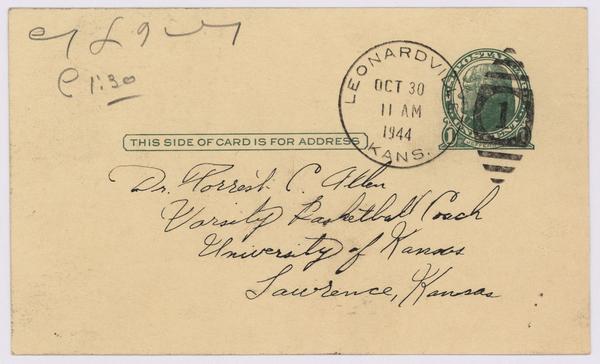 1:30
LEONARDVI
OCT 30
11 AM
1944
KANS.
THIS SIDE OF CARD IS FOR ADDRESS
Dr. Forrest C. Allen
Varsity Basketball Coach
University of Kansas
Lawrence, Kansas